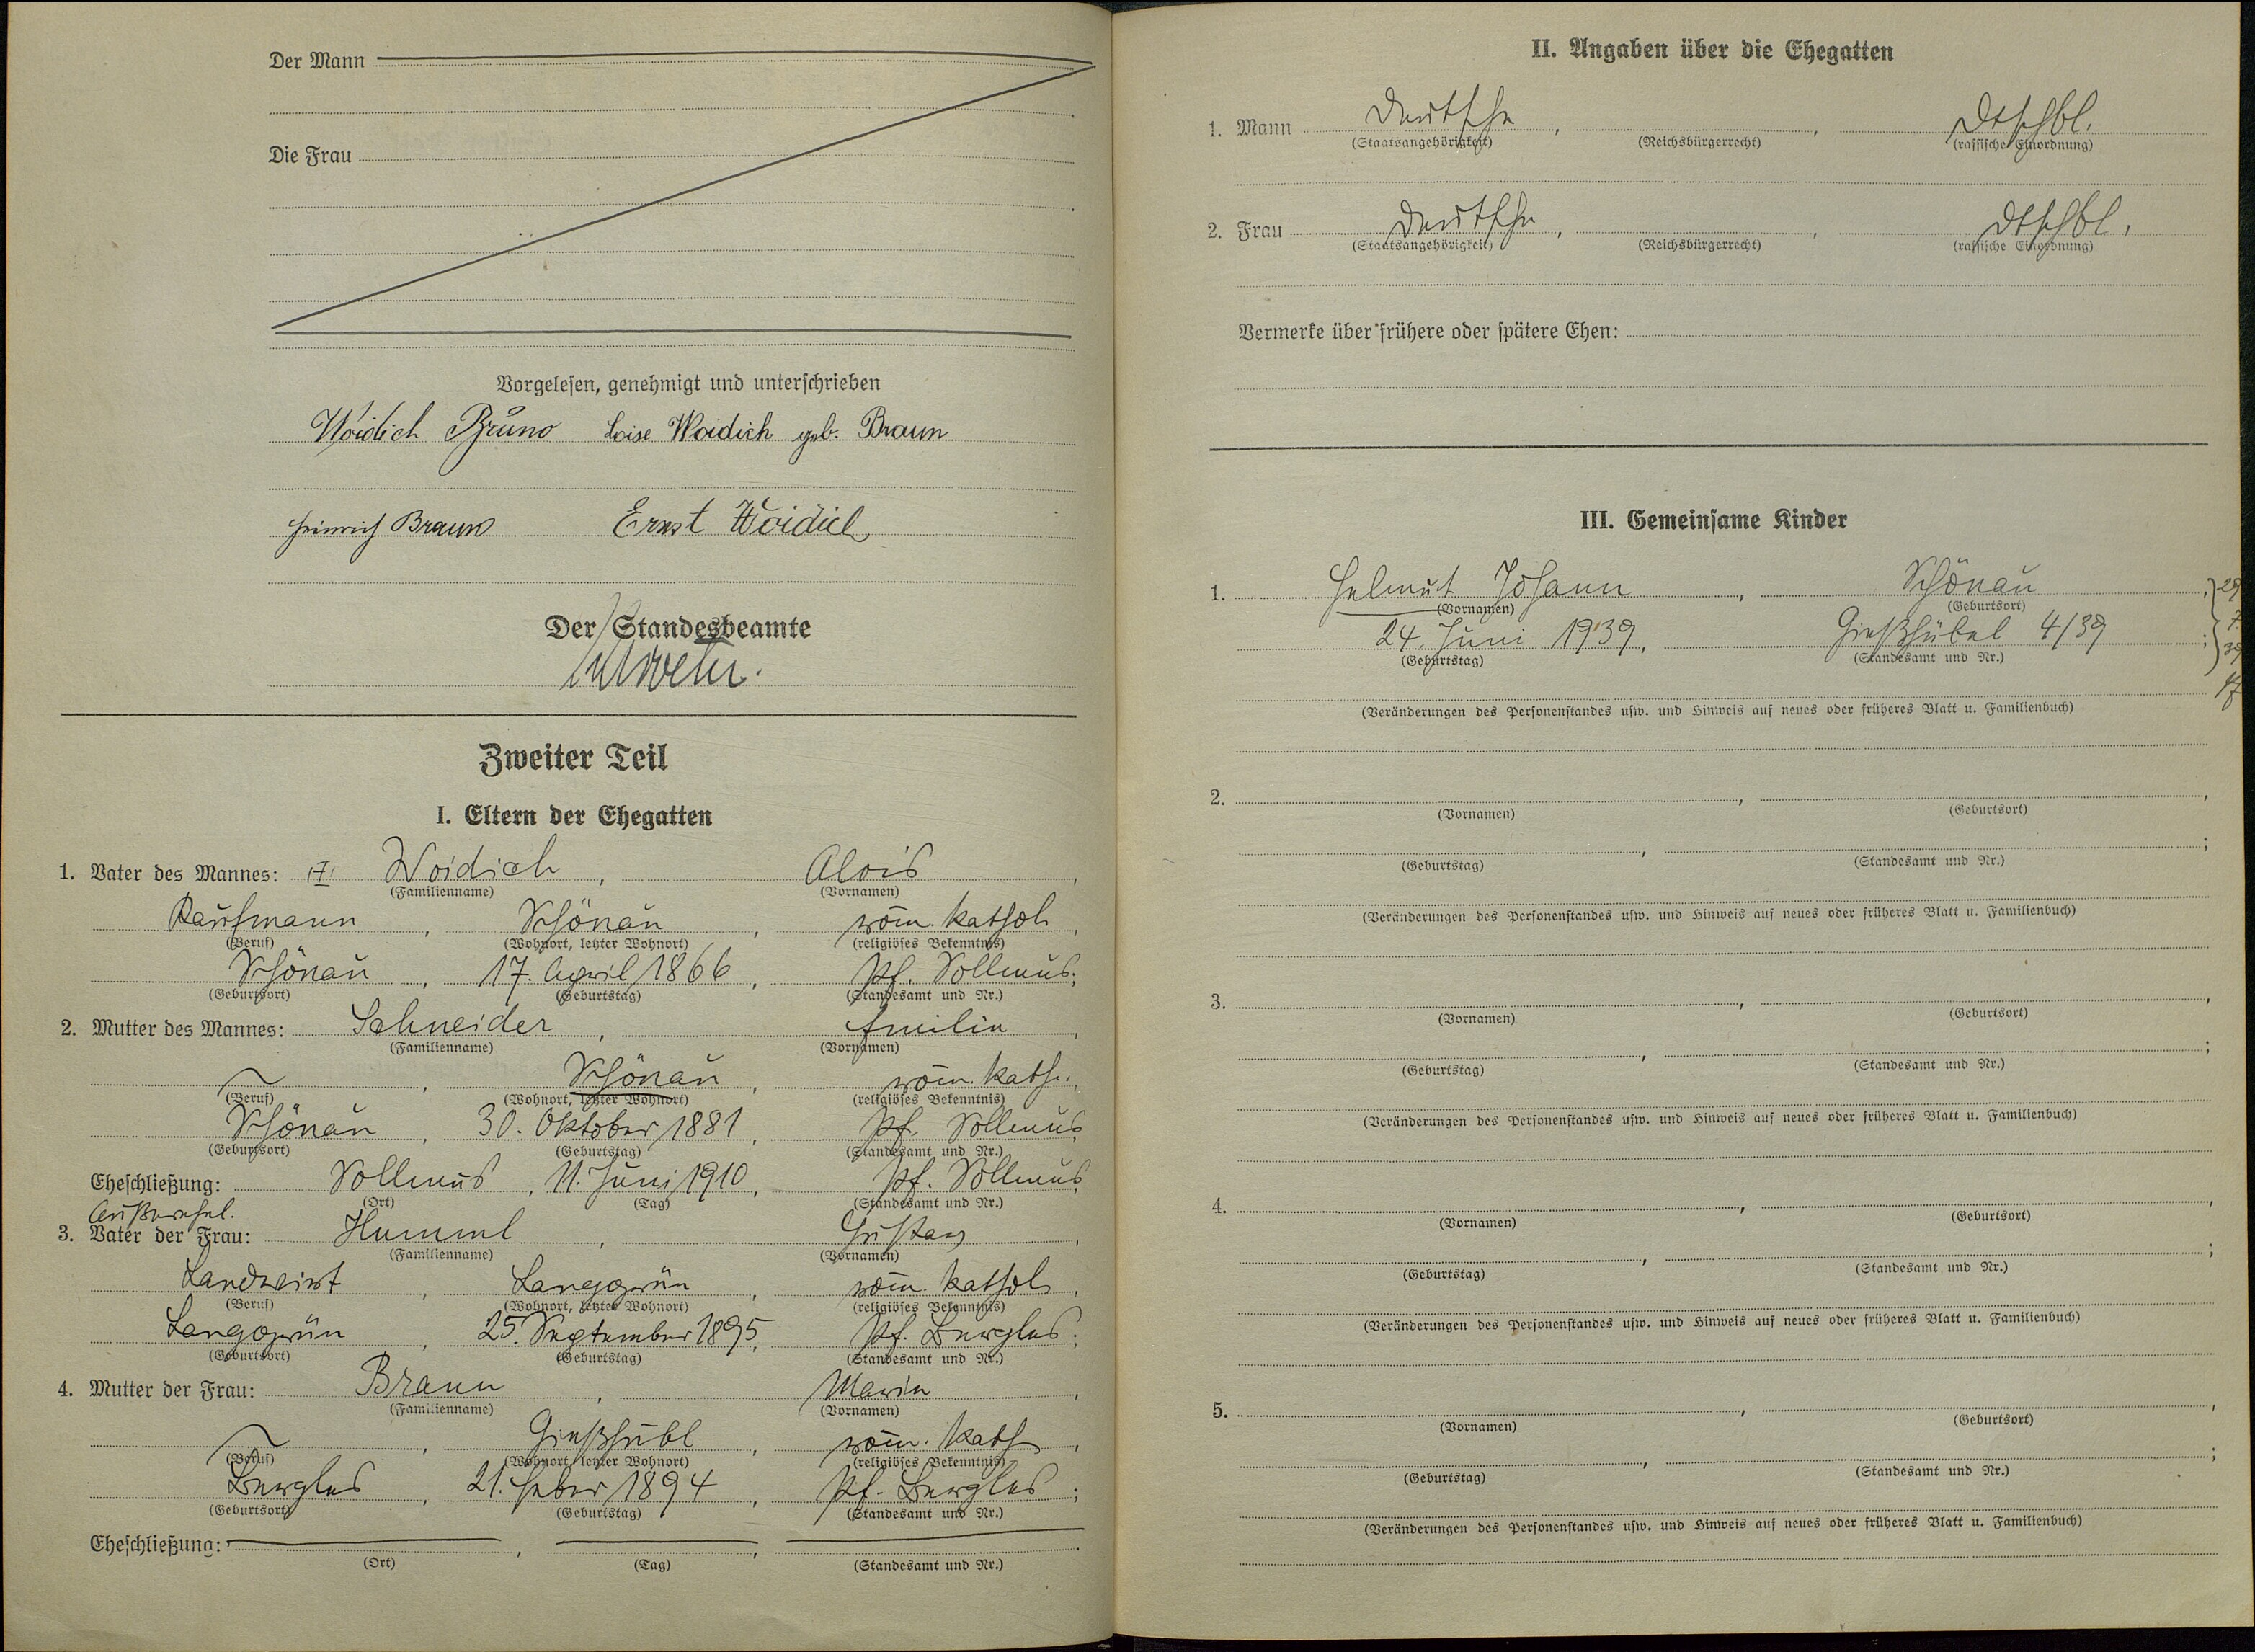 Der Mann
Die Frau
Vorgelesen, genehmigt und unterschrieben
Woidich Bruno Loise Woidich geb. Braun
Heinrich Braun Ernst Woidich
Der Standesbeamte
Zweiter Teil
I. Eltern der Ehegatten
1. Vater des Mannes: Woidich, Alois,
(Familienname) (Vornamen)
Kaufmann, Schönau, röm. kathol.,
(Beruf) (Wohnort, letzter Wohnort) (religiöses Bekenntnis)
Schönau, 17. April 1866, Pf. Sollmus;
(Geburtsort) (Geburtstag) (Standesamt und Nr.)
2. Mutter des Mannes: Schneider, Emilie,
(Familienname) (Vornamen)
Schönau, röm. kath.,
(Beruf) (Wohnort, letzter Wohnort) (religiöses Bekenntnis)
Schönau, 30. Oktober 1881, Pf. Sollmus
(Geburtsort) (Geburtstag) (Standesamt und Nr.)
Eheschließung: Sollmus, 11. Juni 1910, Pf. Sollmus
(Ort) (Tag) (Standesamt und Nr.)
Außerehel.
3. Vater der Frau: Humml, Gustav,
(Familienname) (Vornamen)
Landwirt, Langgrün, röm. kathol.,
(Beruf) (Wohnort, letzter Wohnort) (religiöses Bekenntnis)
Langgrün, 25. September 1895, Pf. Bergles;
(Geburtsort) (Geburtstag) (Standesamt und Nr.)
4. Mutter der Frau: Braun, Marie,
(Familienname) (Vornamen)
Gießhübl, röm. kath.,
(Beruf) (Wohnort, letzter Wohnort) (religiöses Bekenntnis)
Bergles, 21. Feber 1894, Pf. Bergles;
(Geburtsort) (Geburtstag) (Standesamt und Nr.)
Eheschließung:
(Ort) (Tag) (Standesamt und Nr.)
II. Angaben über die Ehegatten
1. Mann Deutsche, , Dtschbl.
(Staatsangehörigkeit) (Reichsbürgerrecht) (rassische Einordnung)
2. Frau Deutsche, , Dtschbl.
(Staatsangehörigkeit) (Reichsbürgerrecht) (rassische Einordnung)
Vermerke über frühere oder spätere Ehen:
III. Gemeinsame Kinder
1. Helmut Johann, Schönau,
(Vornamen) (Geburtsort)
24. Juni 1939, Gießhübel 4/39;
(Geburtstag) (Standesamt und Nr.)
(Veränderungen des Personenstandes usw. und Hinweis auf neues oder früheres Blatt u. Familienbuch)
2.
(Vornamen) (Geburtsort)
(Geburtstag) (Standesamt und Nr.)
(Veränderungen des Personenstandes usw. und Hinweis auf neues oder früheres Blatt u. Familienbuch)
3.
(Vornamen) (Geburtsort)
(Geburtstag) (Standesamt und Nr.)
(Veränderungen des Personenstandes usw. und Hinweis auf neues oder früheres Blatt u. Familienbuch)
4.
(Vornamen) (Geburtsort)
(Geburtstag) (Standesamt und Nr.)
(Veränderungen des Personenstandes usw. und Hinweis auf neues oder früheres Blatt u. Familienbuch)
5.
(Vornamen) (Geburtsort)
(Geburtstag) (Standesamt und Nr.)
(Veränderungen des Personenstandes usw. und Hinweis auf neues oder früheres Blatt u. Familienbuch)